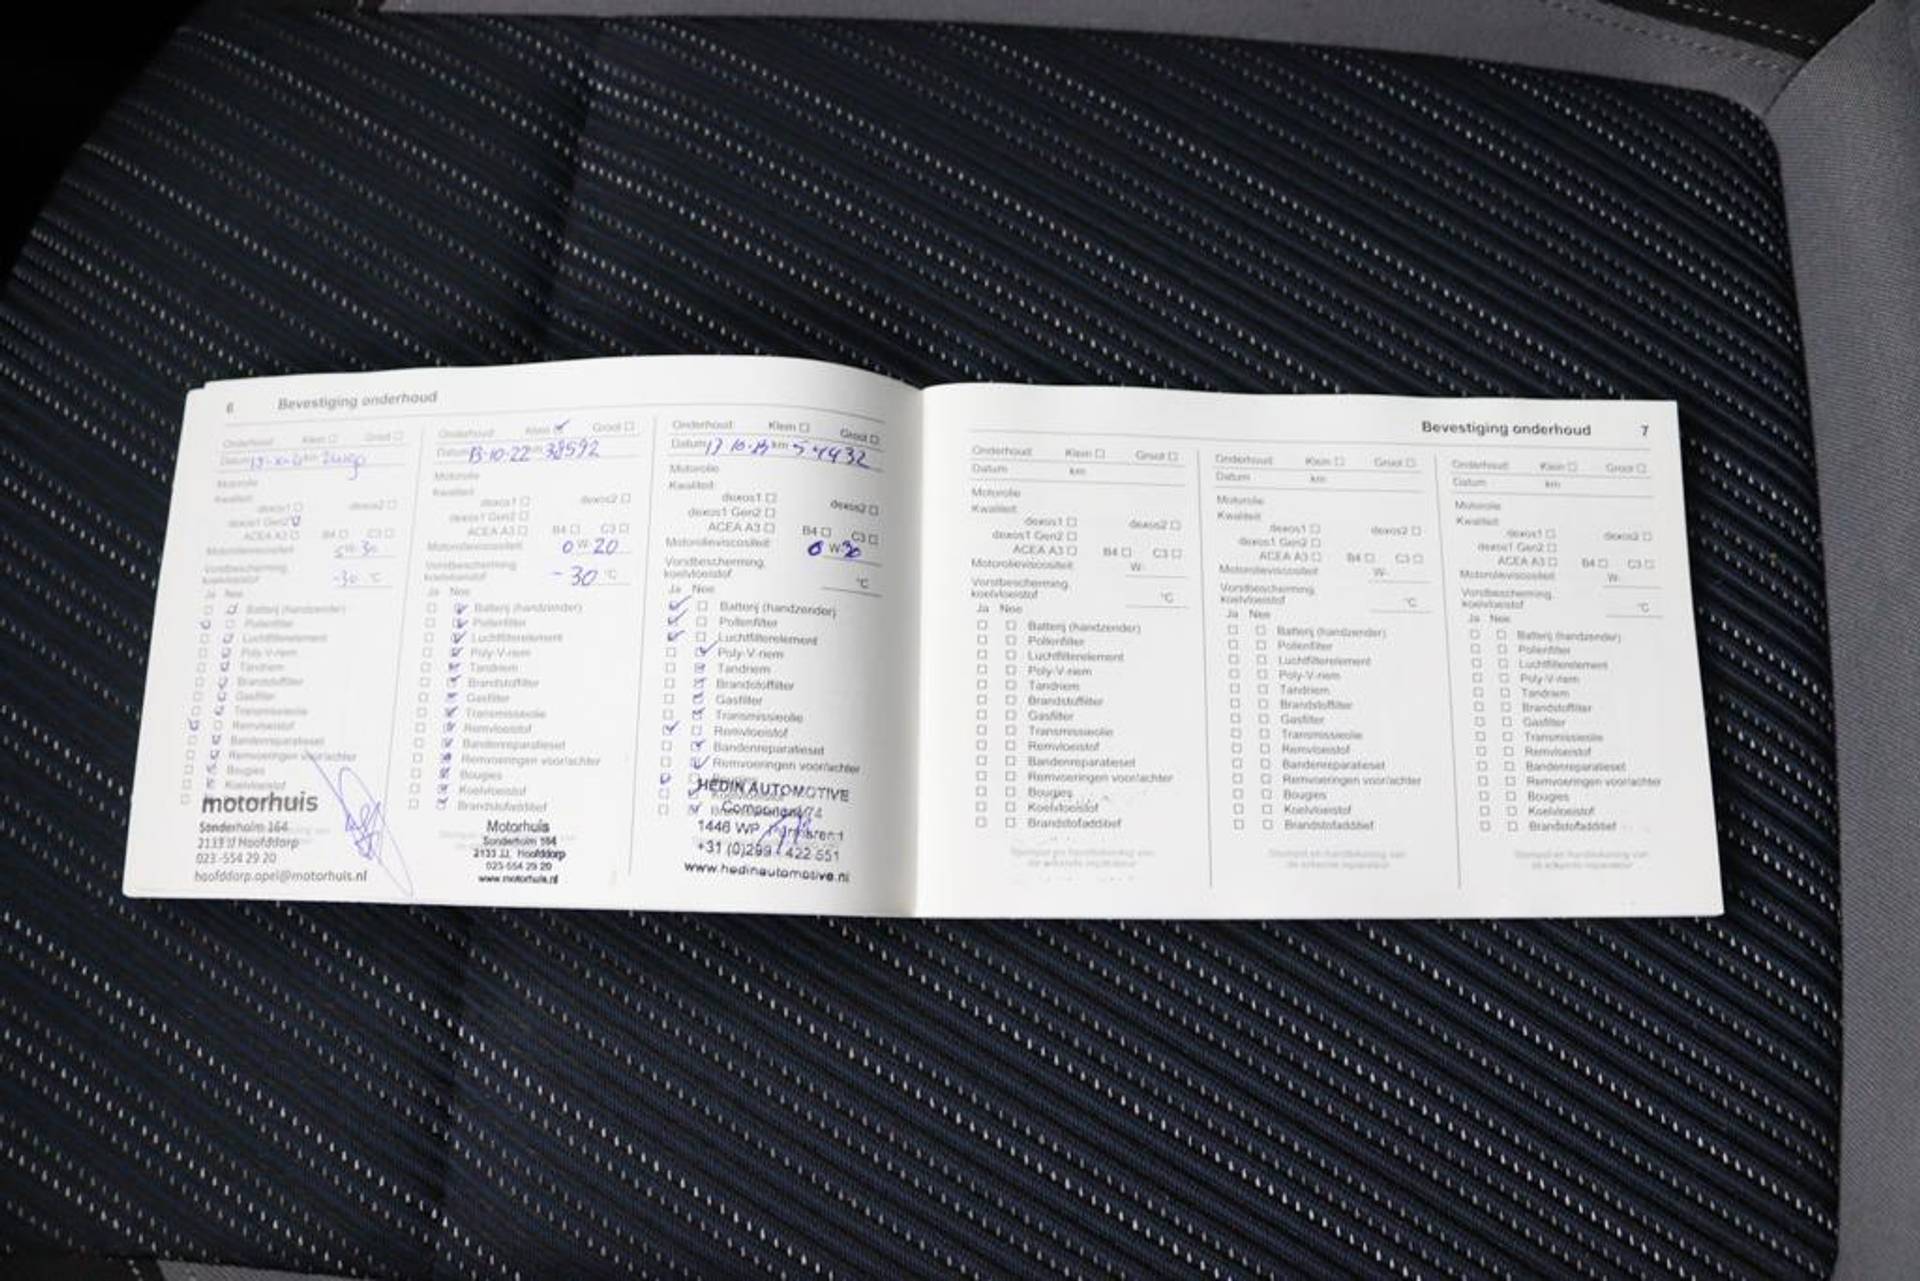 6 Bevestiging onderhoud
Onderhoud Klein Groot
Datum km
Motorolie
Kwaliteit
dexos1 dexos2
dexos1 Gen2
ACEA A3 B4 C3
Motorolieviscositeit 5 W 30
Vorstbescherming
koelvloeistof -30 °C
Ja Nee
Batterij (handzender)
Pollenfilter
Luchtfilterelement
Poly-V-riem
Tandriem
Brandstoffilter
Gasfilter
Transmissieolie
Remvloeistof
Bandenreparatieset
Remvoeringen voor/achter
Bougies
Koelvloeistof
motorhuis
Sonderholm 164
2133 JJ Hoofddorp
023-554 29 20
hoofddorp.opel@motorhuis.nl
Onderhoud Klein Groot
Datum 13-10-22 km 38592
Motorolie
Kwaliteit
dexos1 dexos2
dexos1 Gen2
ACEA A3 B4 C3
Motorolieviscositeit 0 W 20
Vorstbescherming
koelvloeistof -30 °C
Ja Nee
Batterij (handzender)
Pollenfilter
Luchtfilterelement
Poly-V-riem
Tandriem
Brandstoffilter
Gasfilter
Transmissieolie
Remvloeistof
Bandenreparatieset
Remvoeringen voor/achter
Bougies
Koelvloeistof
Brandstofadditief
Motorhuis
Sonderholm 164
2133 JJ, Hoofddorp
023-554 29 20
www.motorhuis.nl
Onderhoud Klein Groot
Datum km 54432
Motorolie
Kwaliteit:
dexos1 dexos2
dexos1 Gen2
ACEA A3 B4 C3
Motorolieviscositeit 0 W- 30
Vorstbescherming
koelvloeistof °C
Ja Nee
Batterij (handzender)
Pollenfilter
Luchtfilterelement
Poly-V-riem
Tandriem
Brandstoffilter
Gasfilter
Transmissieolie
Remvloeistof
Bandenreparatieset
Remvoeringen voor/achter
HEDIN AUTOMOTIVE
1446 WP
+31 (0)299 - 422 551
www.hedinautomotive.nl
Bevestiging onderhoud 7
Onderhoud Klein Groot
Datum km
Motorolie
Kwaliteit:
dexos1 dexos2
dexos1 Gen2
ACEA A3 B4 C3
Motorolieviscositeit W-
Vorstbescherming
koelvloeistof °C
Ja Nee
Batterij (handzender)
Pollenfilter
Luchtfilterelement
Poly-V-riem
Tandriem
Brandstoffilter
Gasfilter
Transmissieolie
Remvloeistof
Bandenreparatieset
Remvoeringen voor/achter
Bougies
Koelvloeistof
Brandstofadditief
Stempel en handtekening van
de erkende reparateur
Onderhoud Klein Groot
Datum km
Motorolie
Kwaliteit:
dexos1 dexos2
dexos1 Gen2
ACEA A3 B4 C3
Motorolieviscositeit W-
Vorstbescherming
koelvloeistof °C
Ja Nee
Batterij (handzender)
Pollenfilter
Luchtfilterelement
Poly-V-riem
Tandriem
Brandstoffilter
Gasfilter
Transmissieolie
Remvloeistof
Bandenreparatieset
Remvoeringen voor/achter
Bougies
Koelvloeistof
Brandstofadditief
Stempel en handtekening van
de erkende reparateur
Onderhoud Klein Groot
Datum km
Motorolie
Kwaliteit:
dexos1 dexos2
dexos1 Gen2
ACEA A3 B4 C3
Motorolieviscositeit W-
Vorstbescherming
koelvloeistof °C
Ja Nee
Batterij (handzender)
Pollenfilter
Luchtfilterelement
Poly-V-riem
Tandriem
Brandstoffilter
Gasfilter
Transmissieolie
Remvloeistof
Bandenreparatieset
Remvoeringen voor/achter
Bougies
Koelvloeistof
Brandstofadditief
Stempel en handtekening van
de erkende reparateur